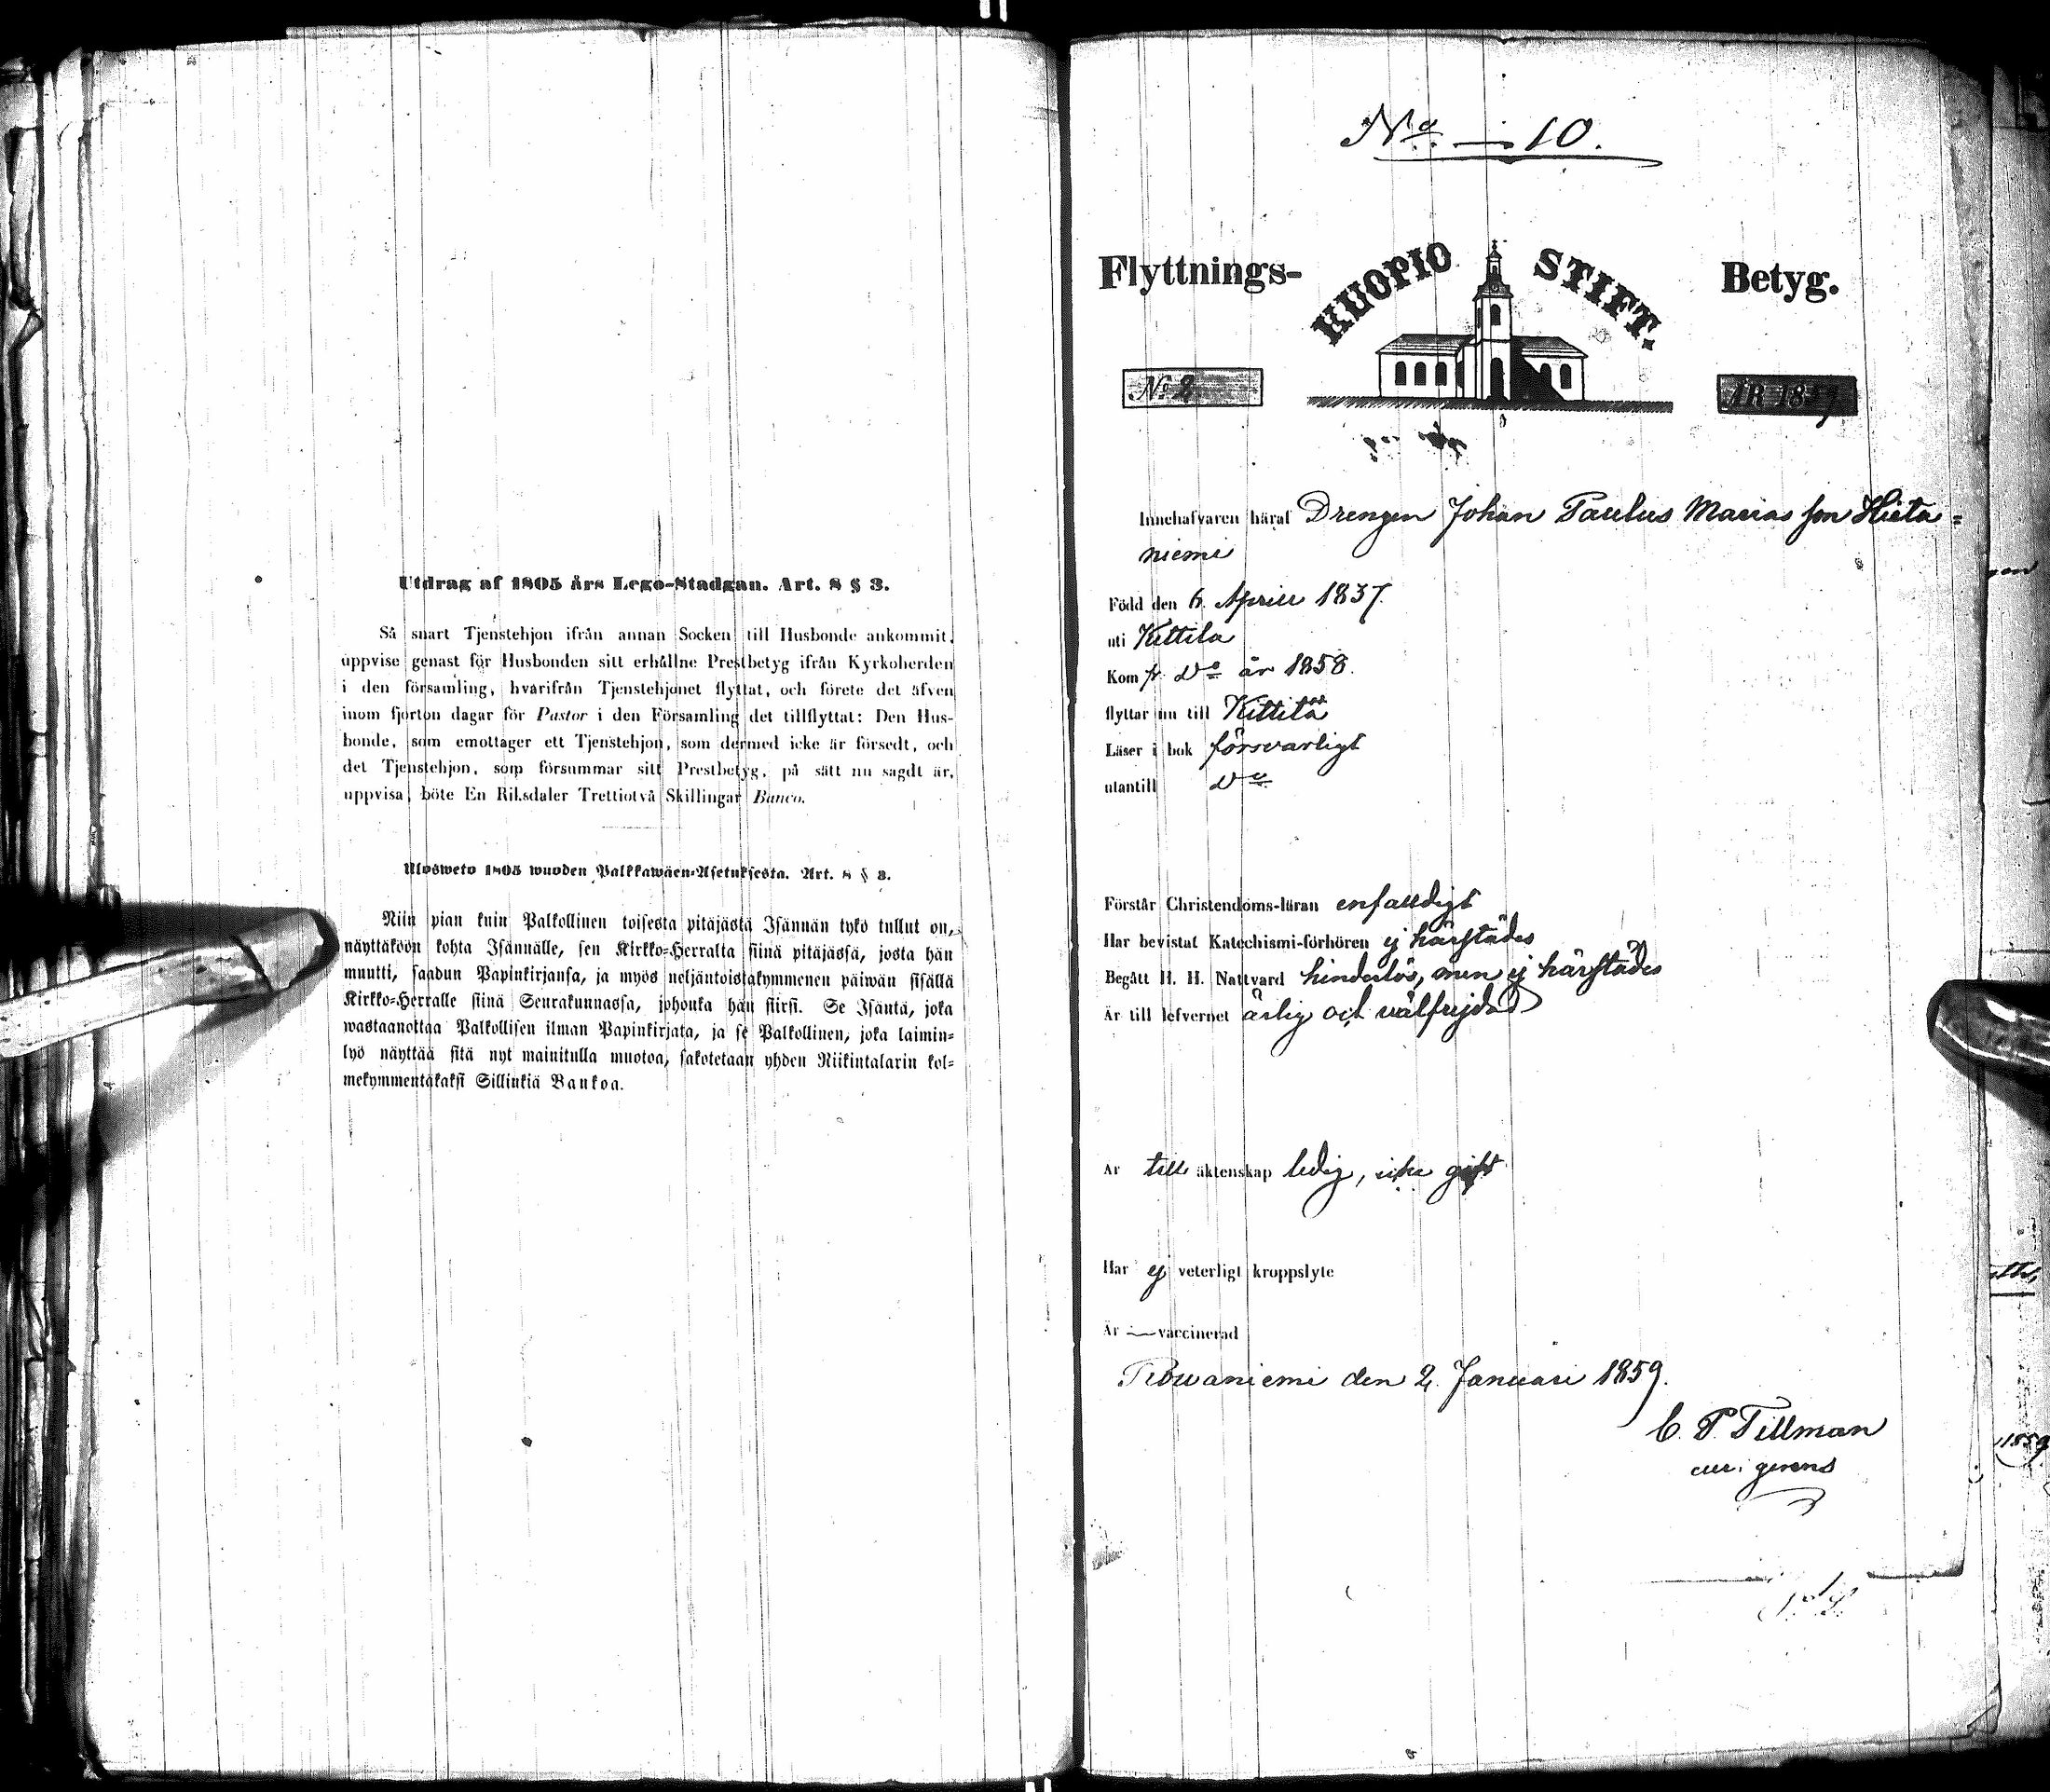 Utdrag af 1805 års Lego-Stadgan. Art. 8 § 3.
Så snart Tjenstehjon ifrån annan Socken till Husbonde ankommit,
uppvise genast för Husbonden sitt erhållne Prestbetyg ifrån Kyrkoherden
i den församling, hvarifrån Tjenstehjonet flyttat, och förete det äfven
inom fjorton dagar för Pastor i den Församling det tillflyttat: Den Hus-
bonde, som emottager ett Tjenstehjon, som dermed icke är försedt, och
det Tjenstehjon, som försummar sitt Prestbetyg, på sätt nu sagdt är,
uppvisa, böte En Riksdaler Trettiotvå Skillingar Banco.
Ulosweto 1805 wuoden Palkkawäen-Asetuksesta. Art. 8 § 3.
Niin pian kuin Palkollinen toisesta pitäjästä Isännän tykö tullut on,
näyttäköön kohta Isännälle, sen Kirkko-Herralta siinä pitäjässä, josta hän
muutti, saadun Papinkirjansa, ja myös neljäntoistakymmenen päiwän sisällä
Kirkko-Herralle siinä Seurakunnassa, johonka hän siirsi. Se Isäntä, joka
wastaanottaa Palkollisen ilman Papinkirjata, ja se Palkollinen, joka laimin-
lyö näyttää sitä nyt mainitulla muotoa, sakotetaan yhden Riikintalarin kol-
mekymmentäkaksi Sillinkiä Bankoa.
No 10.
Flyttnings- KUOPIO STIFT. Betyg.
No 2 ÅR 1859
Innehafvaren häraf Drengen Johan Paulus Marias son Hieta=
niemi
Född den 6. Aprill 1837.
uti Kittila
Kom fr. Do år 1858.
flyttar nu till Kittilä
Läser i bok försvarligt
utantill Do
Förstår Christendoms-läran enfalldigt
Har bevistat Katechismi-förhören ej härstädes
Begått H. H. Nattvard hinderlös, men ej härstädes
Är till lefvernet ärlig och välfrejdad
Är till äktenskap ledig, icke gift
Har ej veterligt kroppslyte
Är — vaccinerad
Rowaniemi den 2. Januari 1859.
C. P. Tillman
cur. gerens